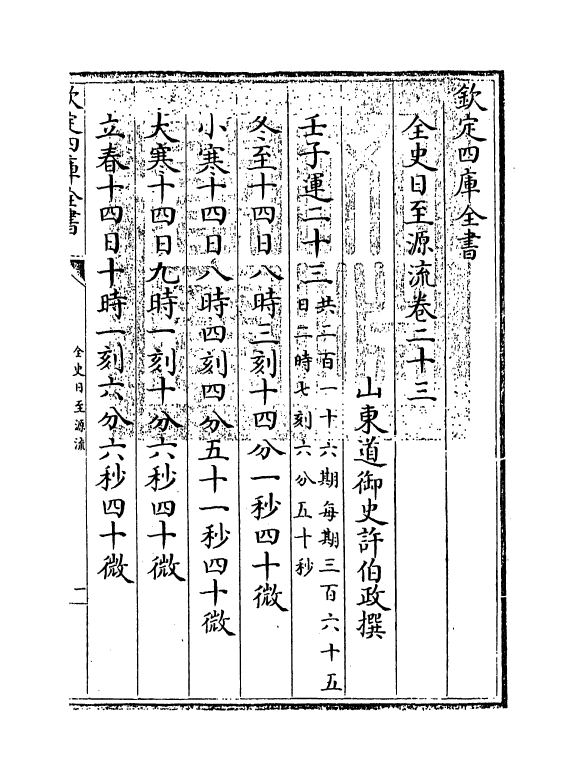 欽定四庫全書
全史日至源流卷二十三
山東道御史許伯政撰
壬子運二十三
共二百一十六期每期三百六十五
日二時七刻六分五十秒
冬至十四日八時三刻十四分一秒四十微
小寒十四日八時四刻四分五十一秒四十微
大寒十四日九時一刻十分六秒四十微
立春十四日十時一刻六分六秒四十微
欽定四庫全書
全史日至源流